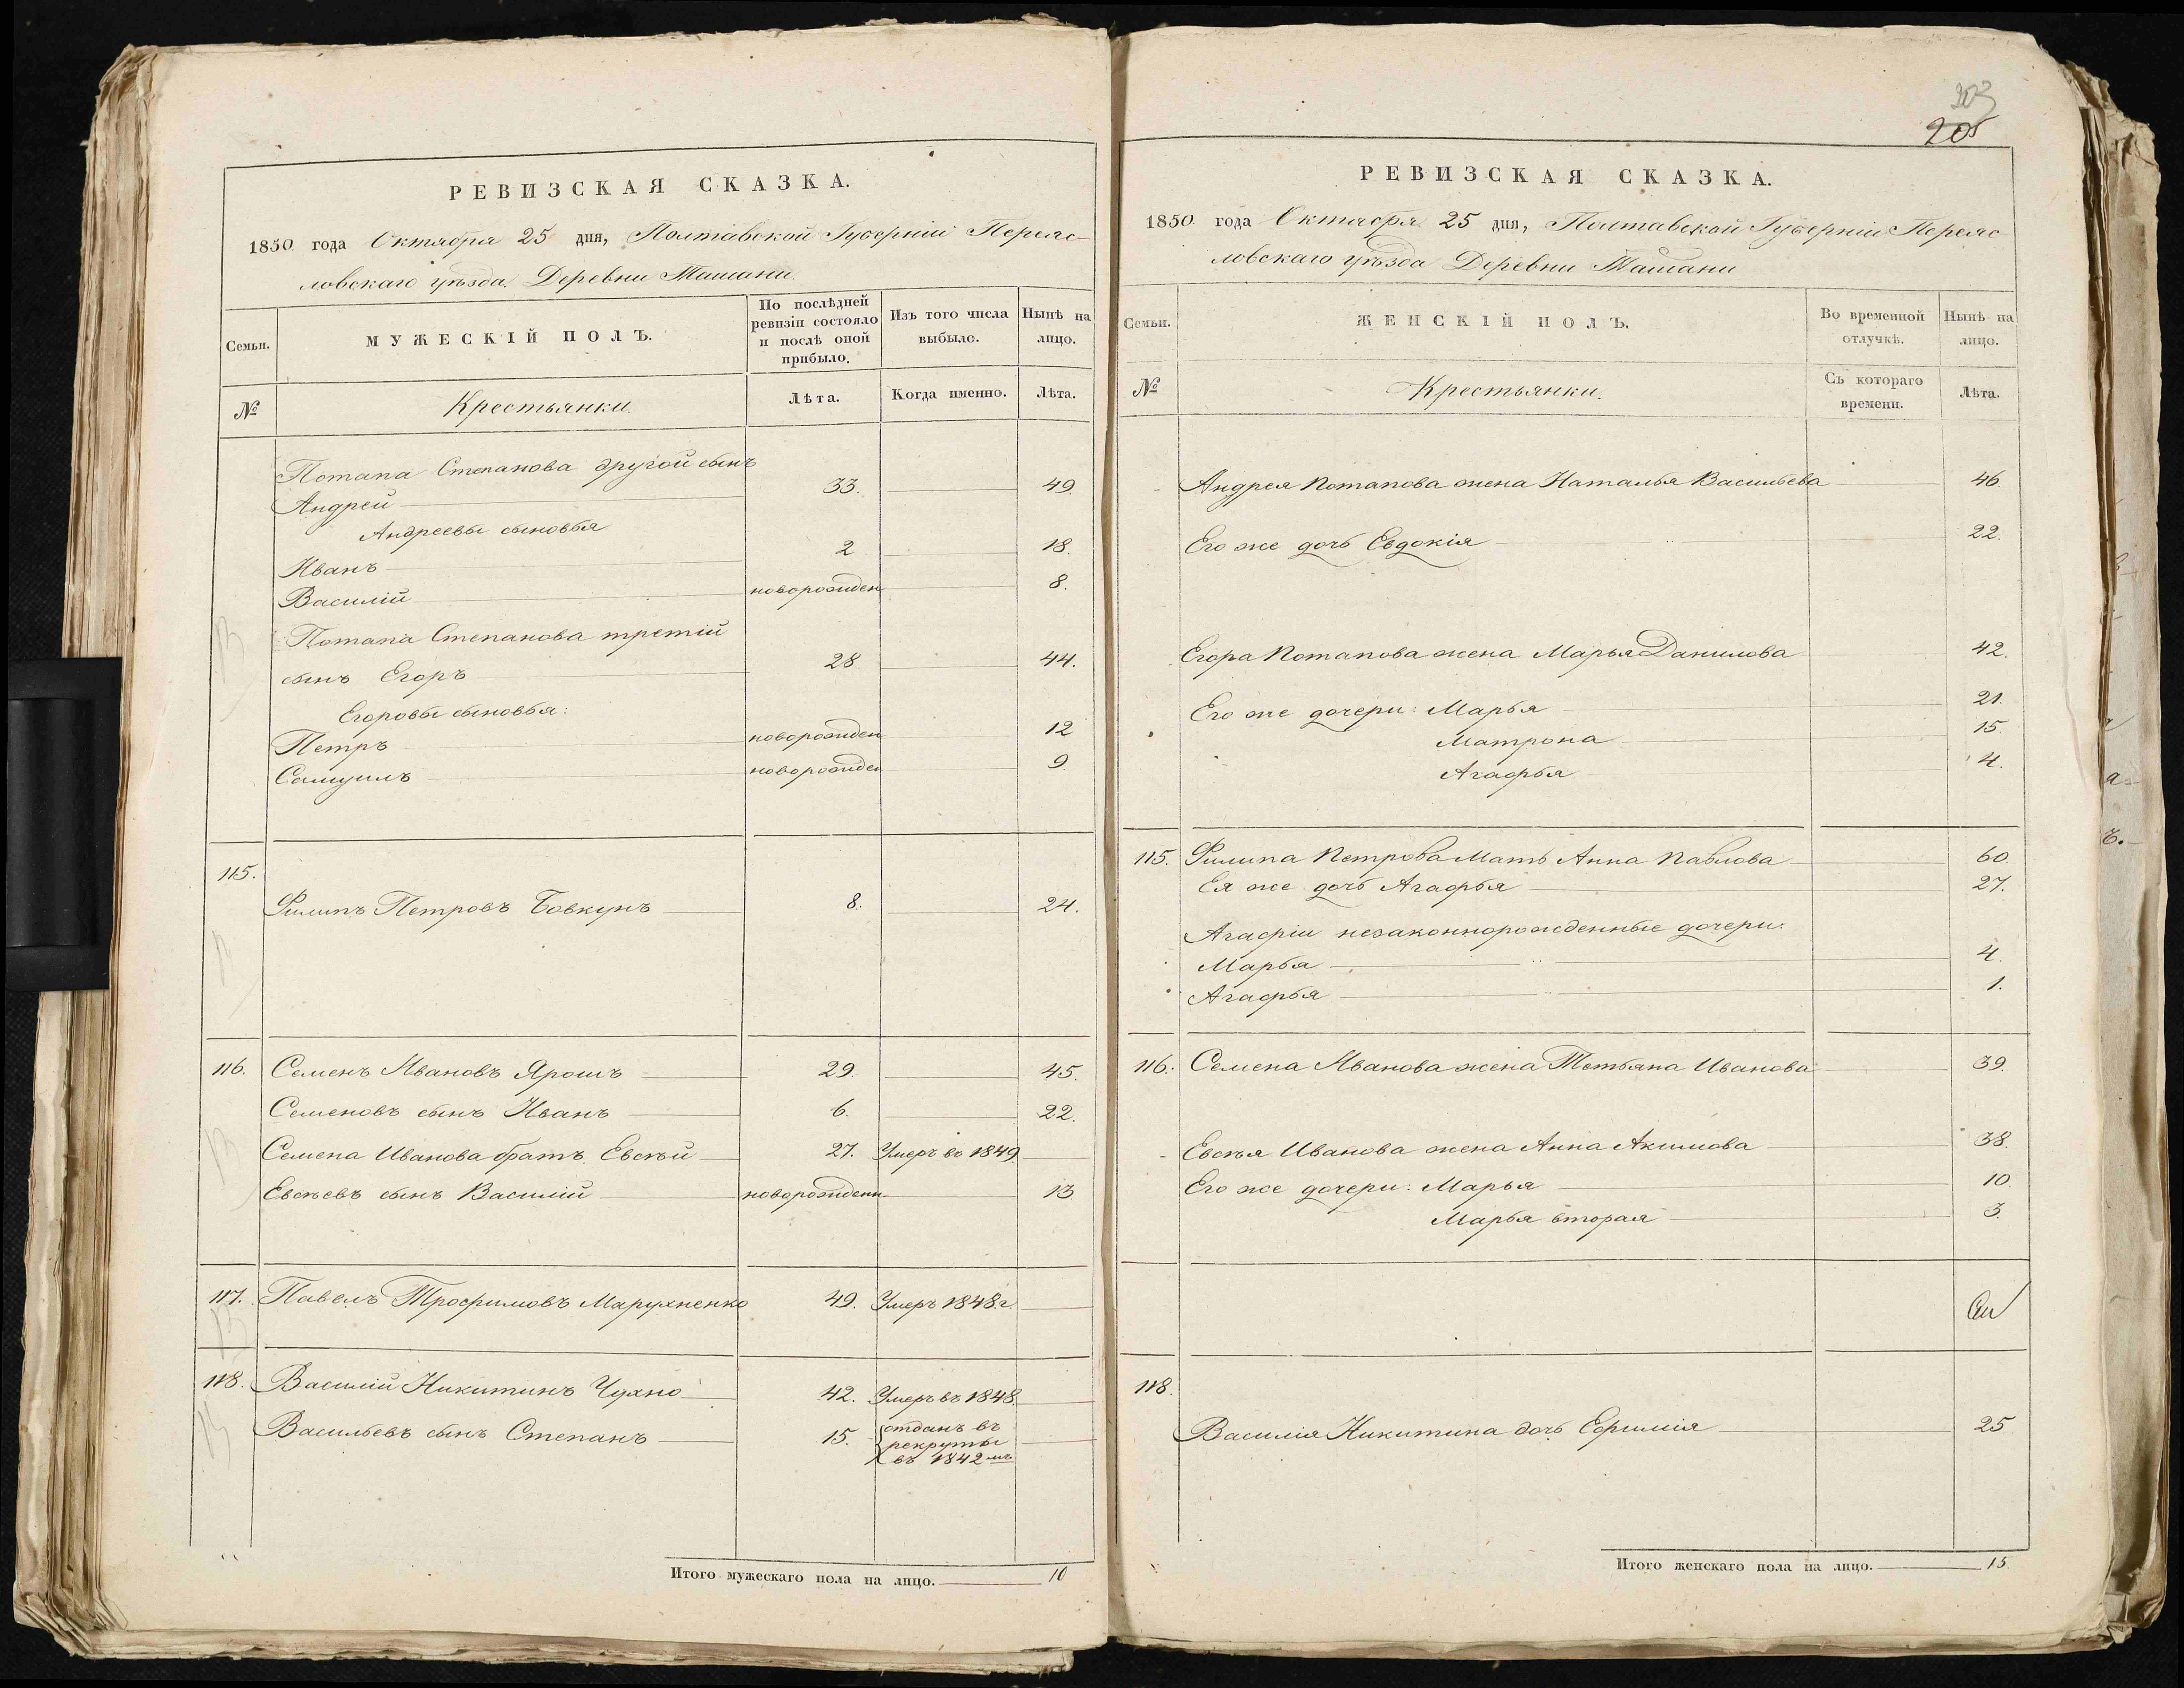 РЕВИЗСКАЯ СКАЗКА.
1850 года Октября 25 дня, Полтавской Губернiи Переяс
ловскаго уѣзда. Деревни Ташани.
Семьи.
МУЖЕСКIЙ ПОЛЪ.
По послѣдней ревизiи состояло и послѣ оной прибыло.
Изъ того числа выбыло.
Нынѣ на лицо.
№
Крестьянки.
Лѣта.
Когда именно.
Лѣта.
Потапа Степанова другой сынъ
Андрей 33. 49
Андреевы сыновья
Иванъ 2 18.
Василiй новорожден 8.
Потапа Степанова третiй
сынъ Егоръ 28. 44.
Егоровы сыновья:
Петръ новорожден 12
Самуилъ новорожден 9
115.
Филипъ Петровъ Бовкунъ 8. 24.
116. Семенъ Ивановъ Ярошъ 29. 45.
Семеновъ сынъ Иванъ 6. 22.
Семена Иванова братъ Евсѣй 27. Умеръ въ 1849.
Евсѣевъ сынъ Василiй новорожденн 13
117. Павелъ Трофимовъ Марухненко 49. Умеръ 1848 г
118. Василiй Никитинъ Чухно 42. Умеръ въ 1848.
Васильевъ сынъ Степанъ 15. отданъ въ
рекруты
въ 1842 мъ
Итого мужескаго пола на лицо. 10
203
205
РЕВИЗСКАЯ СКАЗКА.
1850 года Октября 25 дня, Полтавской Губернiи Переяс
ловскаго уѣзда Деревни Ташани
Семьи.
ЖЕНСКIЙ ПОЛЪ.
Во временной отлучкѣ.
Нынѣ на лицо.
№
Крестьянки.
Съ котораго времени.
Лѣта.
Андрея Потапова жена Наталья Васильева 46.
Его же дочь Евдокiя 22.
Егора Потапова жена Марья Данилова 42.
Его же дочери: Марья 21.
Матрона 15.
Агафья 4.
115. Филипа Петрова Мать Анна Павлова 60.
Ея же дочь Агафья 27.
Агафiи незаконнорожденные дочери:
Марья 4.
Агафья 1.
116. Семена Иванова жена Тетьяна Иванова 39.
Евсѣя Иванова жена Анна Акимова 38.
Его же дочери: Марья 10.
Марья вторая 3.
118.
Василiя Никитина дочь Ефимiя 25
Итого женскаго пола на лицо. 15.